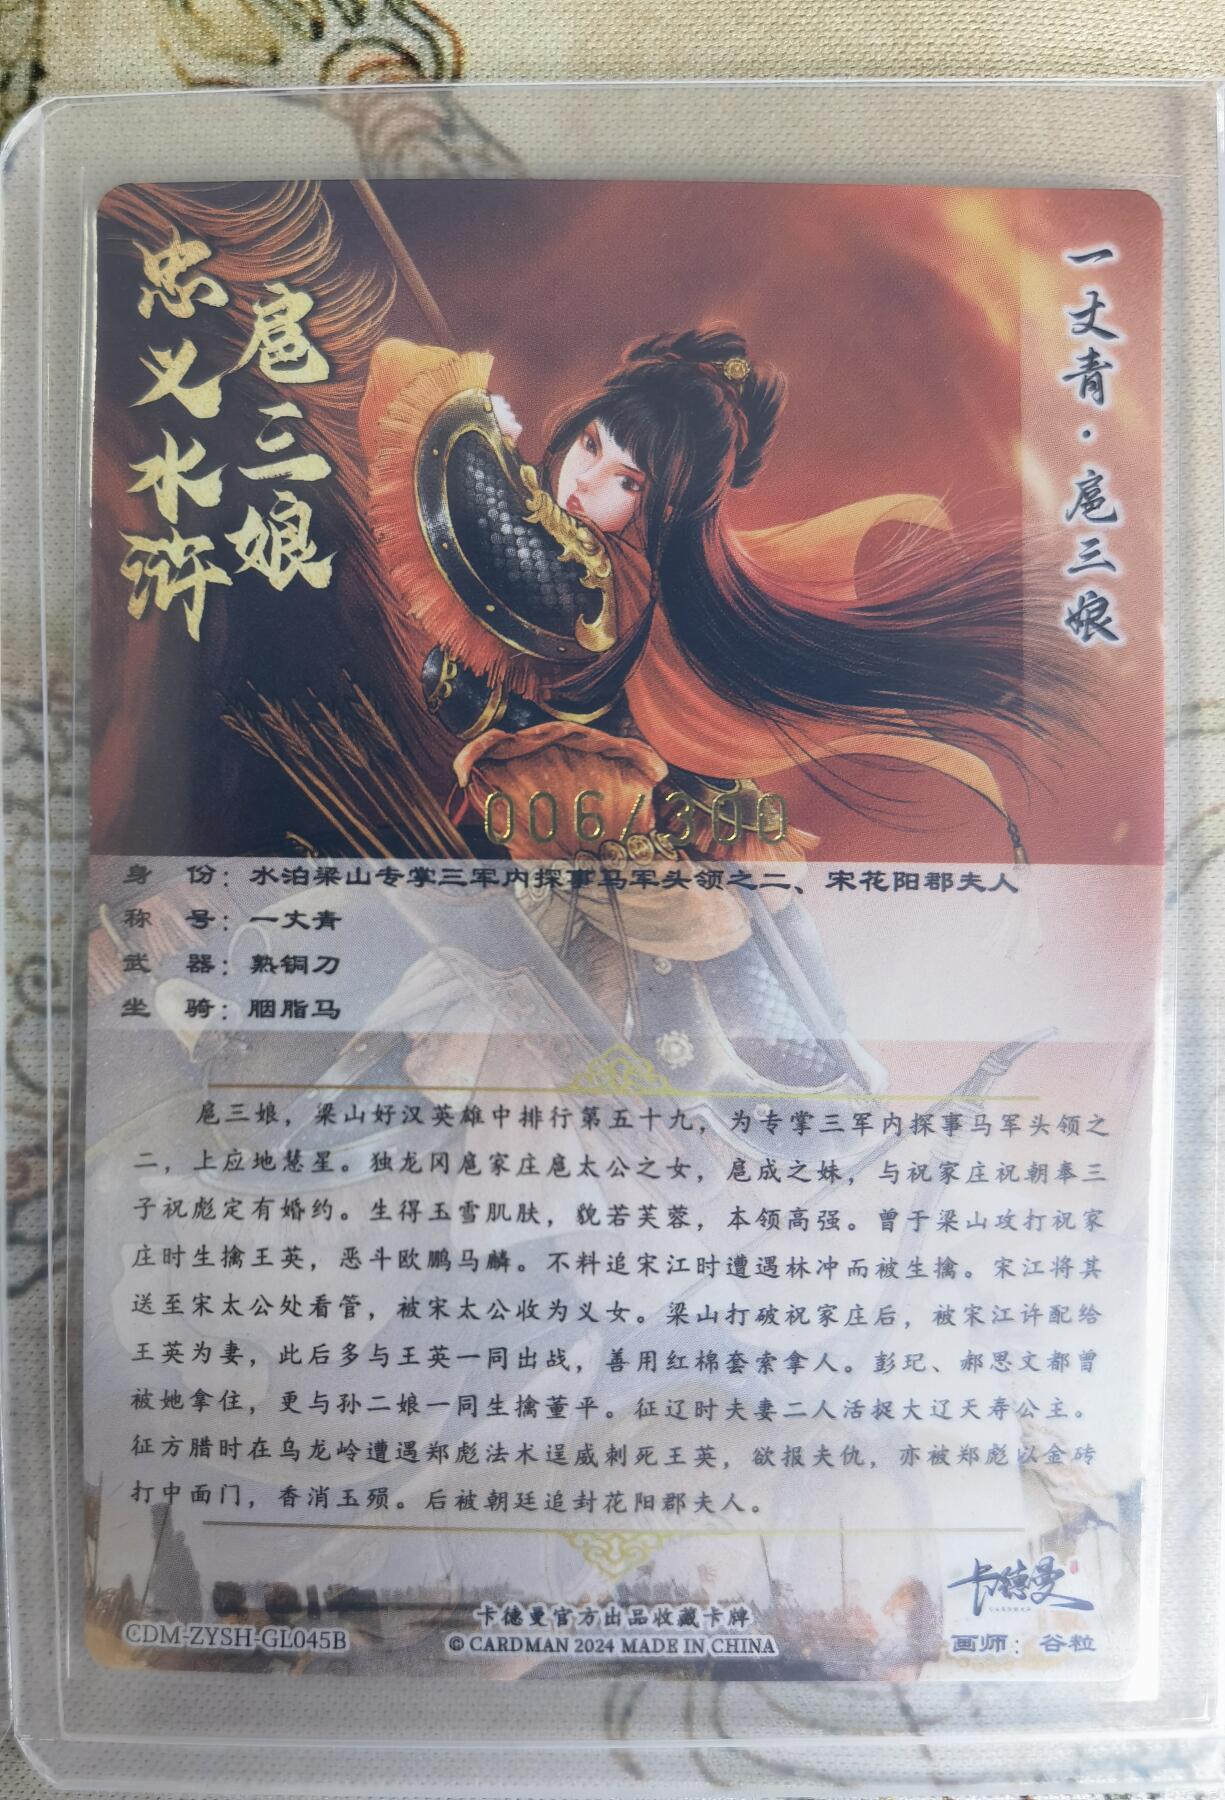 忠义水浒
扈三娘
一丈青·扈三娘
006/300
身份：水泊梁山专掌三军内探事马军头领之二、宋花阳郡夫人
称号：一丈青
武器：熟铜刀
坐骑：胭脂马
扈三娘，梁山好汉英雄中排行第五十九，为专掌三军内探事马军头领之
二，上应地慧星。独龙冈扈家庄扈太公之女，扈成之妹，与祝家庄祝朝奉三
子祝彪定有婚约。生得玉雪肌肤，貌若芙蓉，本领高强。曾于梁山攻打祝家
庄时生擒王英，恶斗欧鹏马麟。不料追宋江时遭遇林冲而被生擒。宋江将其
送至宋太公处看管，被宋太公收为义女。梁山打破祝家庄后，被宋江许配给
王英为妻，此后多与王英一同出战，善用红棉套索拿人。彭玘、郝思文都曾
被她拿住，更与孙二娘一同生擒董平。征辽时夫妻二人活捉大辽天寿公主。
征方腊时在乌龙岭遭遇郑彪法术逞威刺死王英，欲报夫仇，亦被郑彪以金砖
打中面门，香消玉殒。后被朝廷追封花阳郡夫人。
卡德曼
CARDMAN
卡德曼官方出品收藏卡牌
CDM-ZYSH-GL045B
© CARDMAN 2024 MADE IN CHINA
画师：谷粒